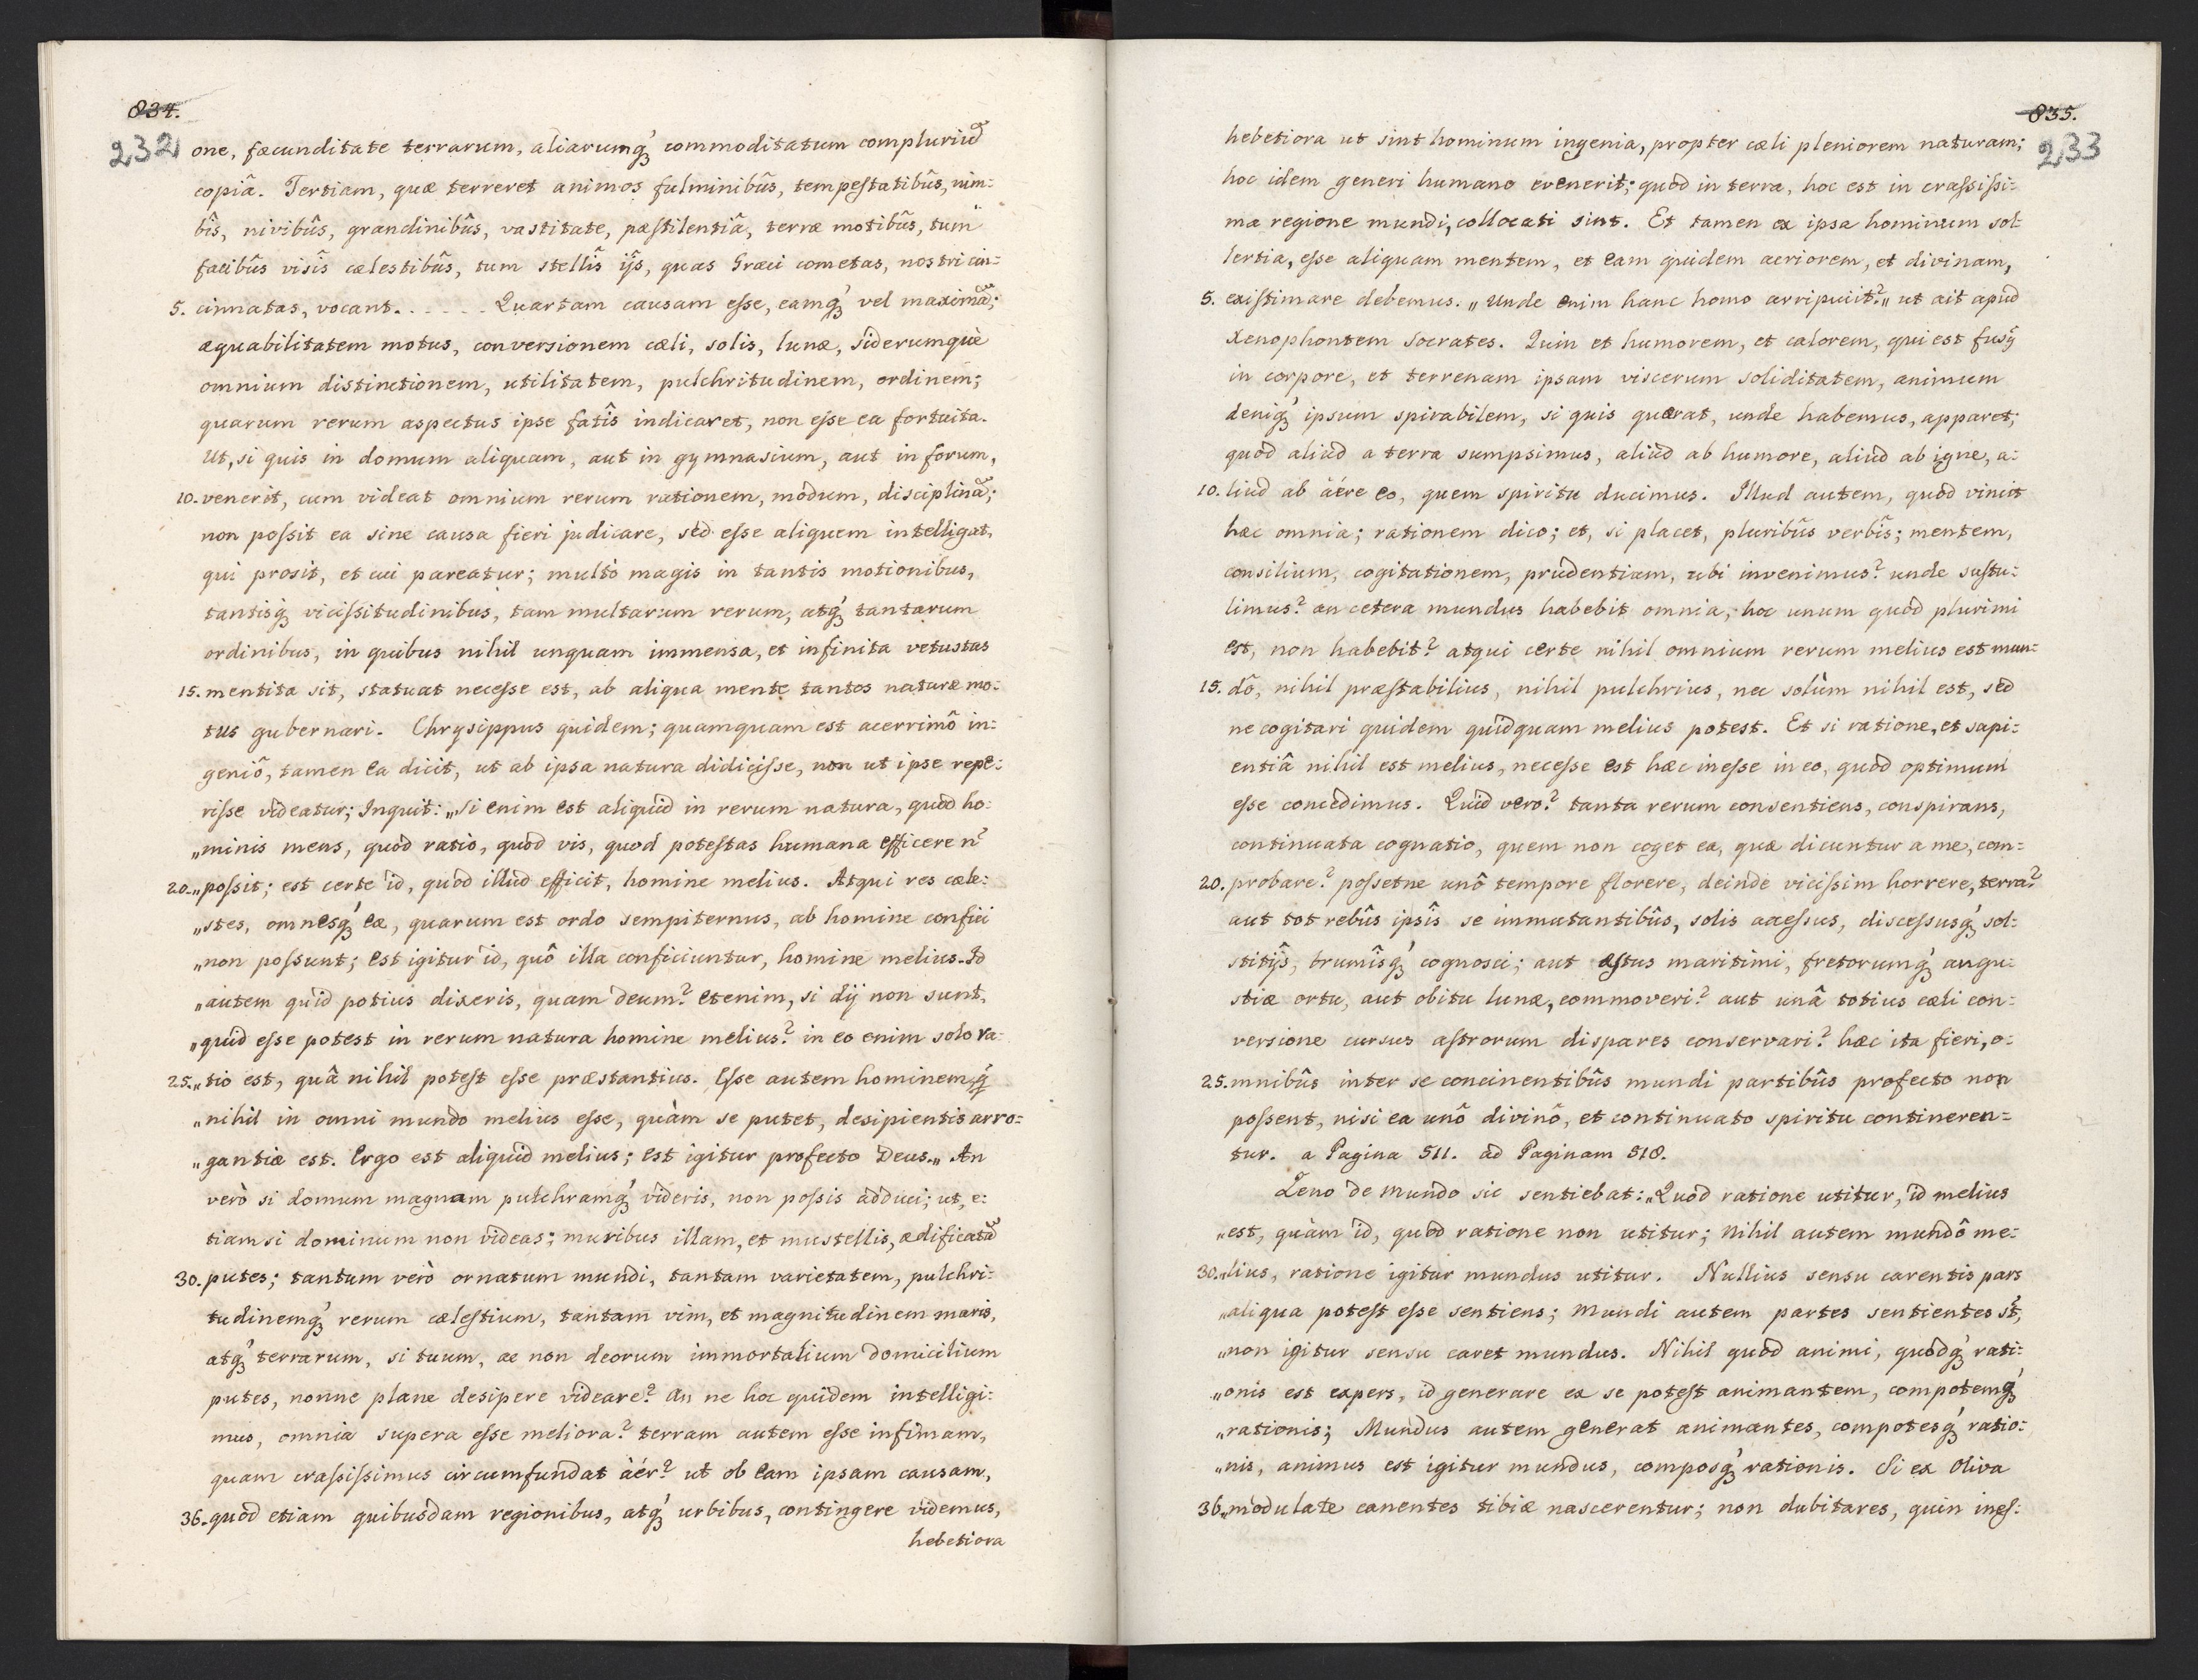 834.
232
one, fæcunditate terrarum, aliarumq́ꝫ commoditatum compluriũ
copiâ. Tertiam, quæ terreret animos fulminibûs, tempestatibûs, nim:
bîs, nivibûs, grandinibûs, vastitate, pæstilentiâ, terræ motibûs, tum
facibûs visîs cælestibûs, tum stellîs ijs, quas Græci cometas, nostri cin:
5. cinnatas, vocant. . . . . . Quartam causam esse, eamq́ꝫ vel maximã;
æquabilitatem motus, conversionem cæli, solis, lunæ, siderumquè
omnium distinctionem, utilitatem, pulchritudinem, ordinem;
quarum rerum aspectus ipse satîs indicaret, non esse ea fortuita.
Ut, si quis in domum aliquam, aut in gymnasium, aut in forum,
10. venerit, cum videat omnium rerum rationem, modum, disciplinã;
non possit ea sine causa fieri judicare, sed esse aliquem intelligat,
qui prosit, et cui pareatur; multò magis in tantis motionibus,
tantisq́ꝫ vicissitudinibus, tam multarum rerum, atq́ꝫ tantarum
ordinibus, in quibus nihil unquam immensa, et infinita vetustas
15. mentita sit, statuat necesse est, ab aliqua mente tantos naturæ mo:
tus gubernari. Chrysippus quidem; quamquam est acerrimô in:
geniô, tamen ea dicit, ut ab ipsa natura didicisse, non ut ipse repe:
risse videatur; Inquit: „Si enim est aliquid in rerum natura, quod ho:
„minis mens, quod ratio, quod vis, quod potestas humana efficere ñ
20. „possit; est certe id, quod illud efficit, homine melius. Atqui res cæle:
„stes, omnesq́ꝫ eæ, quarum est ordo sempiternus, ab homine confici
„non possunt; Est igitur id, quô illa conficiuntur, homine melius. Id
„autem quid potius dixeris, quam deum? Etenim, si dij non sunt,
„quid esse potest in rerum natura homine melius? in eo enim solo ra:
25. „tio est, quâ nihil potest esse præstantius. Esse autem hominem, q́
„nihil in omni mundo melius esse, quàm se putet, desipientis arro:
„gantiæ est. Ergo est aliquid melius; Est igitur profecto Deus.„ An
verò si domum magnam pulchramq́ꝫ videris, non possis adduci; ut, e:
tiamsi dominum non videas; muribus illam, et mustellis, ædificatã
30. putes; tantum verò ornatum mundi, tantam varietatem, pulchri:
tudinemq́ꝫ rerum cælestium, tantam vim, et magnitudinem maris,
atq́ꝫ terrarum, si tuum, ac non deorum immortalium domicilium
putes, nonne plane desipere videare? An ne hoc quidem intelligi:
mus, omnia supera esse meliora? terram autem esse infimam,
quam crassissimus circumfundat àér? ut ob eam ipsam causam,
36. quod etiam quibusdam regionibus, atq́ꝫ urbibus, contingere videmus,
hebetiora
835.
233
hebetiora ut sint hominum ingenia, propter cæli pleniorem naturam;
hoc idem generi humano evenerit; quod in terra, hoc est in crassissi:
ma regione mundi, collocati sint. Et tamen ex ipsa hominum sol
lertia, esse aliquam mentem, et eam quidem acriorem, et divinam,
5. existimare debemus. „Unde enim hanc homo arripuiit?„ ut ait apud
Xenophontem Socrates. Quin et humorem, et calorem, qui est fusq̃
in corpore, et terrenam ipsam viscerum soliditatem, animum
deniq́ꝫ ipsum spirabilem, si quis quærat, unde habemus, apparet;
quod aliud a terra sumpsimus, aliud ab humore, aliud ab igne, a:
10. liud ab äére eo, quem spiritu ducimus. Illud autem, quod vincit
hæc omnia; rationem dico; et, si placet, pluribûs verbîs; mentem,
consilium, cogitationem, prudentiam, ubi invenimus? unde sustu:
limus? an cetera mundus habebit omnia, hoc unum quod plurimi
est, non habebit? atqui certe nihil omnium rerum melius est mun:
15. dô, nihil præstabilius, nihil pulchrius, nec solùm nihil est, sed
ne cogitari quidem quidquam melius potest. Et si ratione, et sapi:
entiâ nihil est melius, necesse est hæc inesse in eo, quod optimum
esse concedimus. Quid vero? tanta rerum consentiens, conspirans,
continuata cognatio, quem non coget ea, quæ dicuntur a me, com:
20. probare? possetne unô tempore florere, deinde vicissim horrere, terra?
aut tot rebûs ipsîs se immutantibûs, solis accessus, discessusq́ꝫ sol:
stitijs, brumîsq́ꝫ cognosci; aut æstus maritimi, fretorumq́ꝫ angu:
stiæ ortu, aut obitu lunæ, commoveri? aut unâ totius cæli con:
versione cursus astrorum dispares conservari? hæc ita fieri, o:
25. mnibûs inter se concinentibûs mundi partibûs profecto non
possent, nisi ea unô divinô, et continuato spiritu contineren:
tur. a Pagina 511. ad Paginam 518.
Zeno de mundo sic sentiebat: „Quod ratione utitur, id melius
„est, quàm id, quod ratione non utitur; Nihil autem mundô me:
30. „lius, ratione igitur mundus utitur. Nullius sensu carentis pars
„aliqua potest esse sentiens; mundi autem partes sentientes st̃,
„non igitur sensu caret mundus. Nihil quod animi, quodq́ꝫ rati:
„onis est expers, id generare ex se potest animantem, compotemq́ꝫ
„rationis; Mundus autem generat animantes, compotesq́ꝫ ratio:
„nis, animus est igitur mundus, composq́ꝫ rationis. Si ex Oliva
36. „modulate canentes tibiæ nascerentur; non dubitares, quin ines: